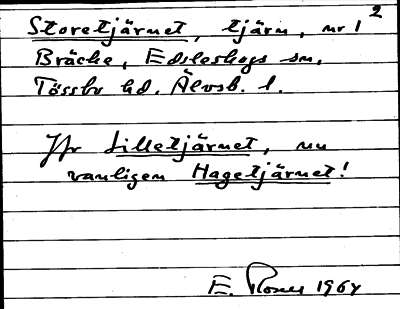 Storetjärnet, tjärn, nr 1 2
Bräcke, Edsleskogs sn.
Tössbo hd. Älvsb. l.
Jfr Lilletjärnet, nu
vanligen Hagetjärnet!
E. Rosell 1964